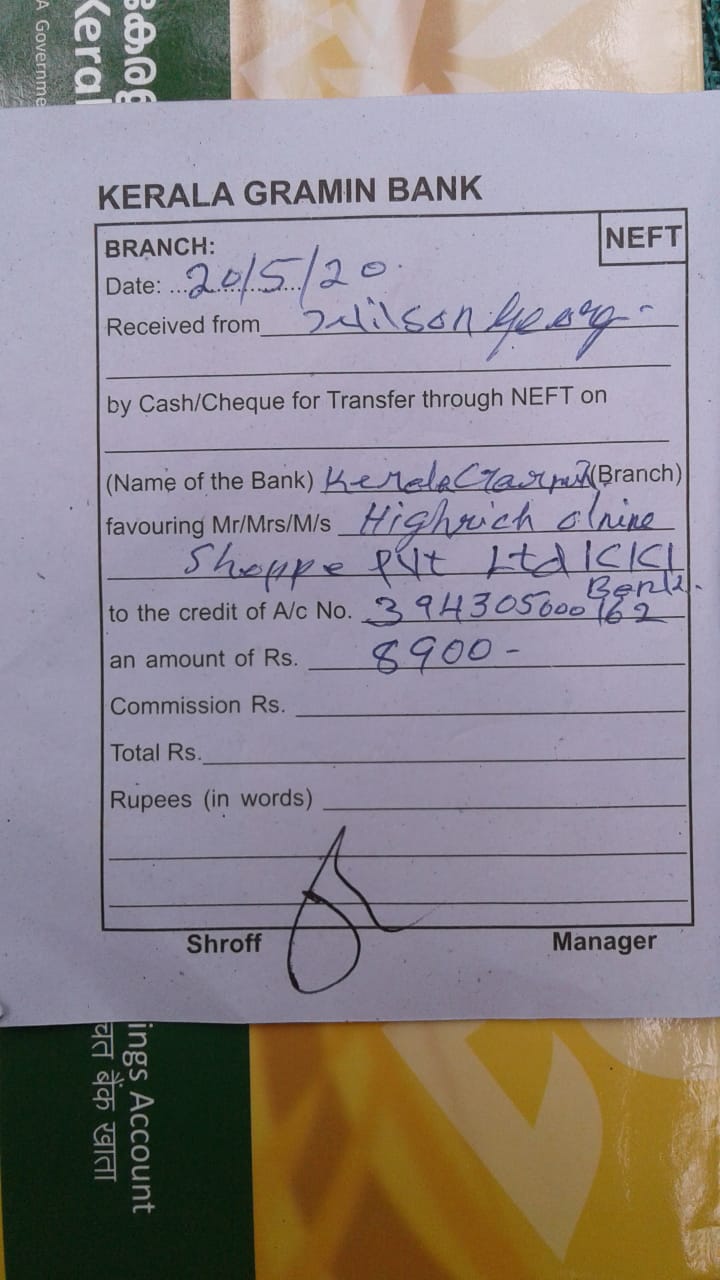 കേരള
Keral
A Governme
KERALA GRAMIN BANK
NEFT
BRANCH:
Date: ...20/5/20.
Received from Wilson Georg-
by Cash/Cheque for Transfer through NEFT on
(Name of the Bank) Kerala (Branch)
favouring Mr/Mrs/M/s Highrich olnine
Shoppe Pvt Ltd ICICI
Bank.
to the credit of A/c No. 394305000162
an amount of Rs. 8900-
Commission Rs.
Total Rs.
Rupees (in words)
Shroff Manager
ings Account
चत बैंक खाता